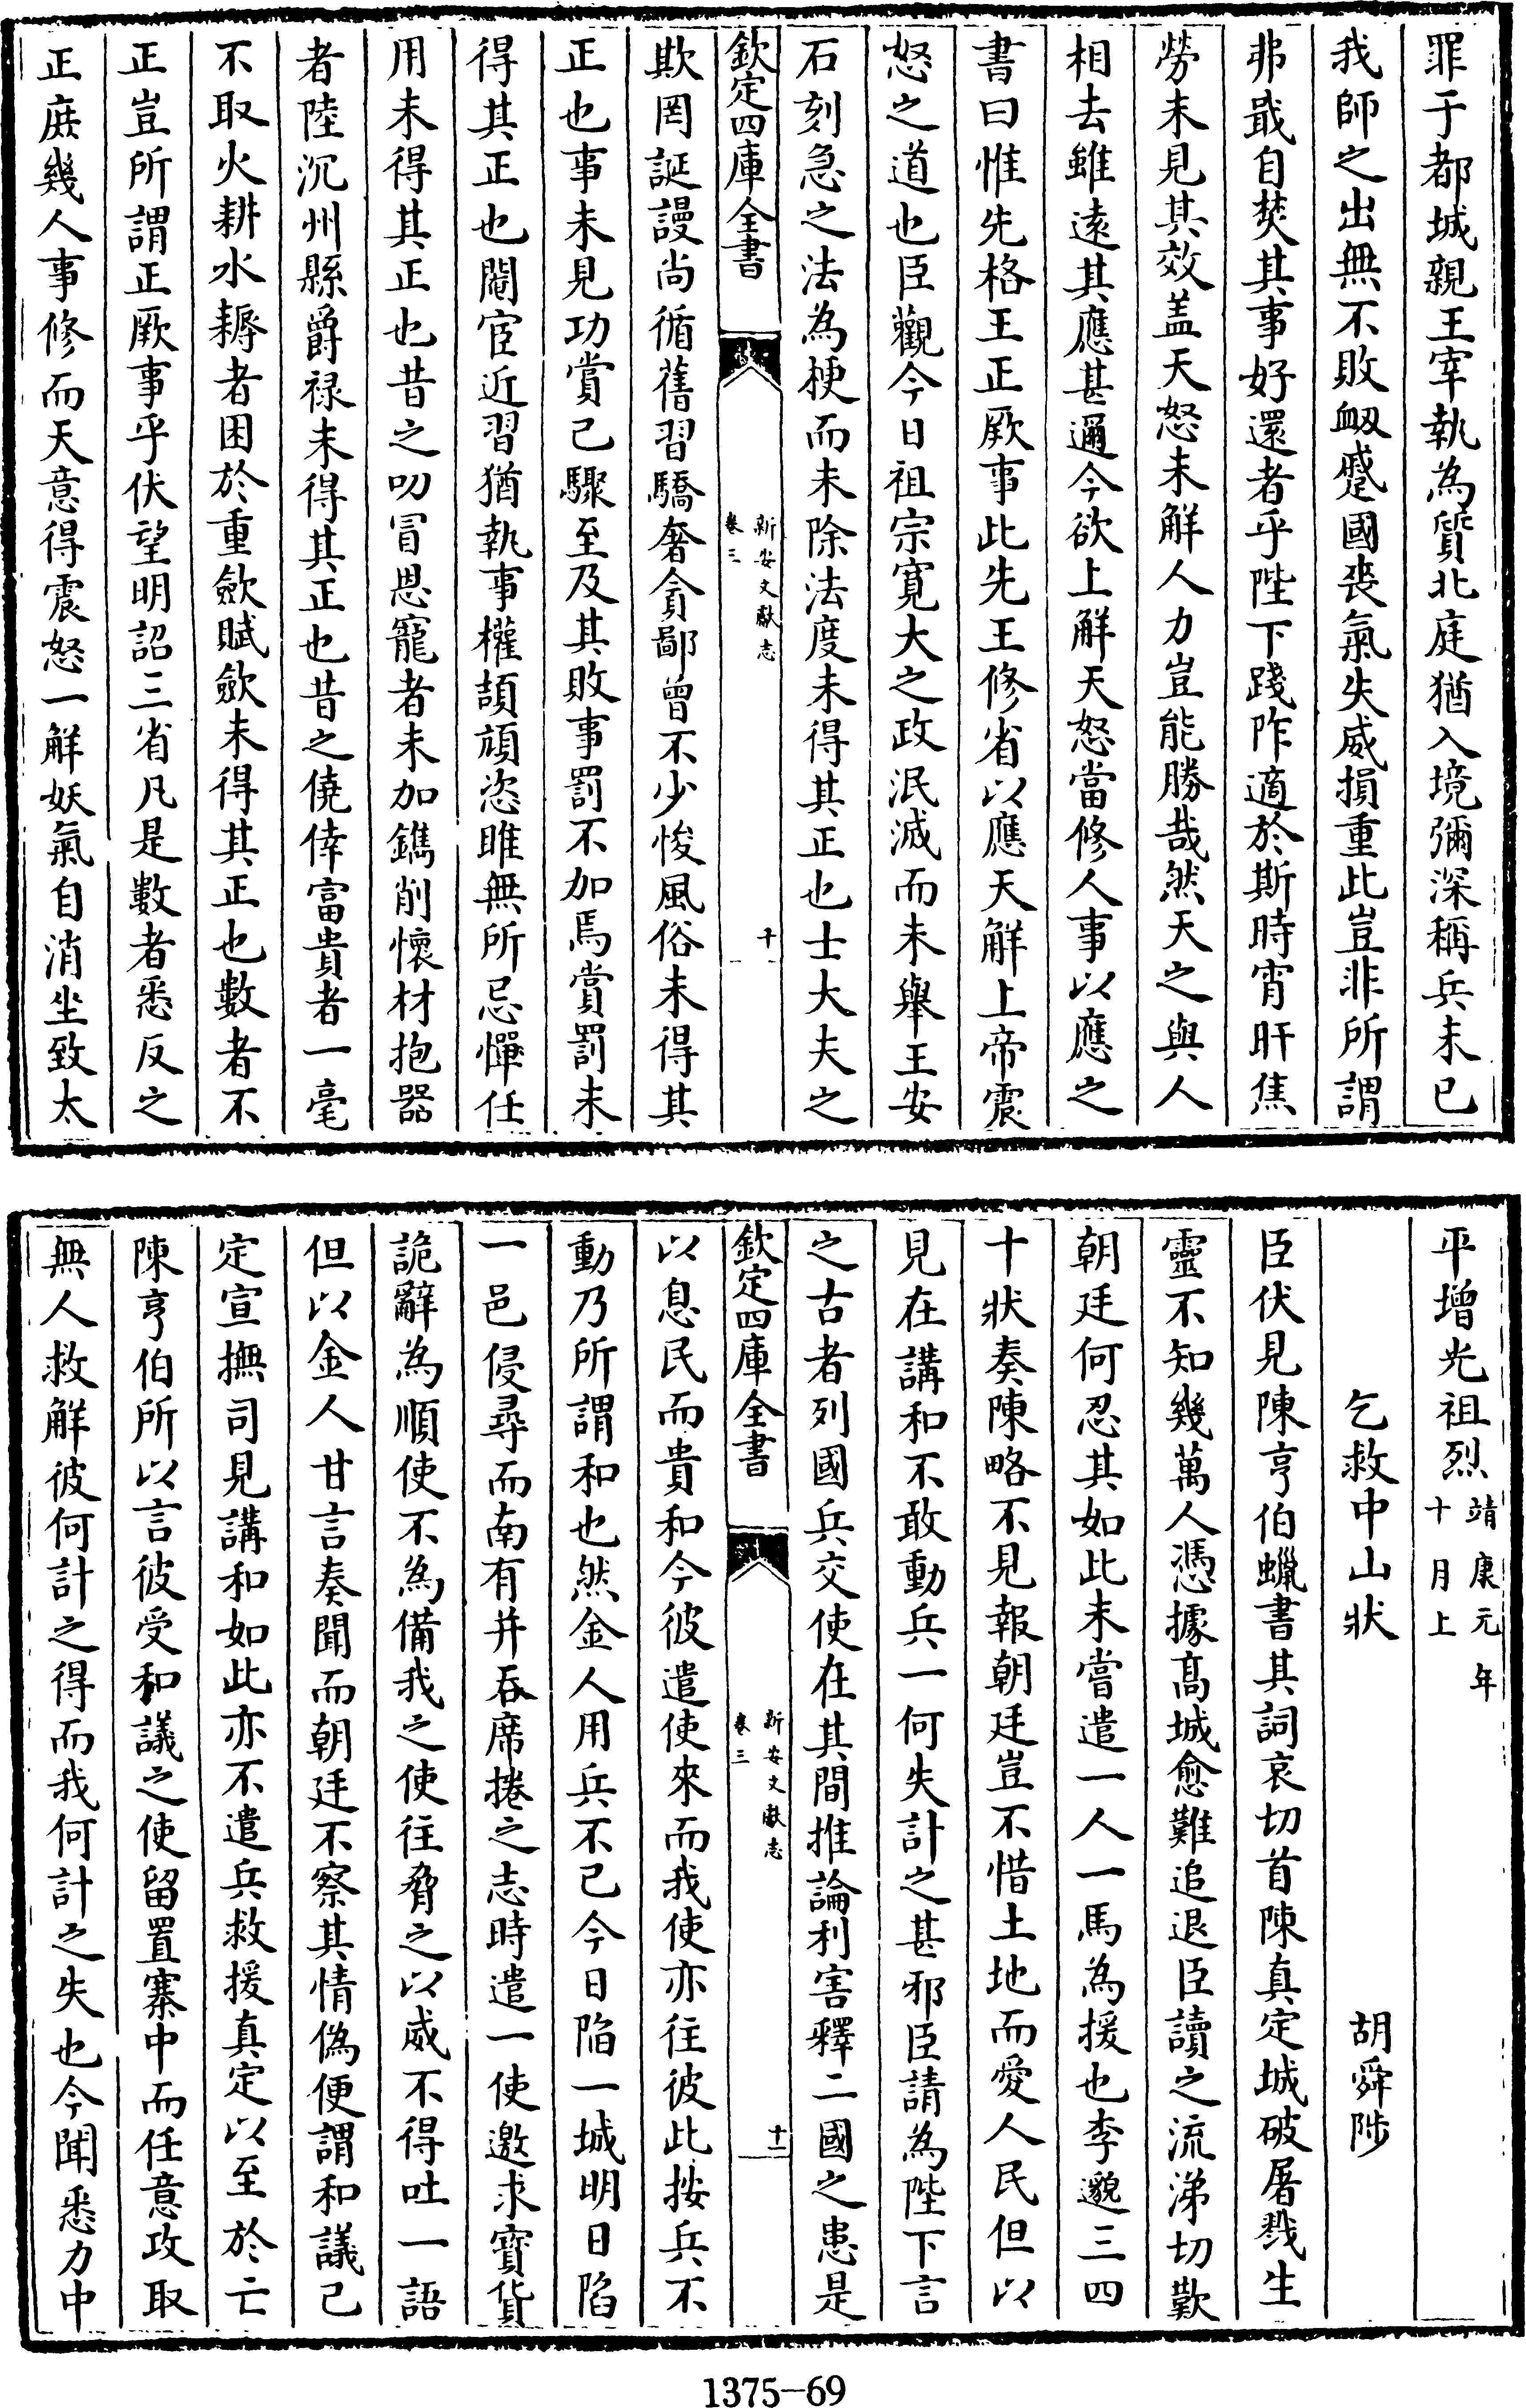 罪于都城親王宰執為質北庭猶入境彌深稱兵未已
我師之出無不敗衂蹙國喪氣失威損重此豈非所謂
弗戢自焚其事好還者乎陛下踐阼適於斯時宵旰焦
勞未見其效盖天怒未解人力豈能勝哉然天之與人
相去雖遠其應甚邇今欲上解天怒當修人事以應之
書曰惟先格王正厥事此先王修省以應天解上帝震
怒之道也臣觀今日祖宗寛大之政泯滅而未舉王安
石刻急之法為梗而未除法度未得其正也士大夫之
欽定四庫全書
新安文獻志
卷三
十一
欺罔誕謾尚循舊習驕奢貪鄙曾不少悛風俗未得其
正也事未見功賞已驟至及其敗事罰不加焉賞罰未
得其正也閹宦近習猶執事權頡頏恣睢無所忌憚任
用未得其正也昔之叨冒恩寵者未加鐫削懷材抱器
者陸沉州縣爵禄未得其正也昔之僥倖富貴者一毫
不取火耕水耨者困於重歛賦歛未得其正也數者不
正豈所謂正厥事乎伏望明詔三省凡是數者悉反之
正庶幾人事修而天意得震怒一解妖氣自消坐致太
平增光祖烈靖康元年十月上
乞救中山狀 胡舜陟
臣伏見陳亨伯蠟書其詞哀切首陳真定城破屠戮生
靈不知幾萬人憑據髙城愈難追退臣讀之流涕切歎
朝廷何忍其如此未嘗遣一人一馬為援也李邈三四
十狀奏陳略不見報朝廷豈不惜土地而愛人民但以
見在講和不敢動兵一何失計之甚邪臣請為陛下言
之古者列國兵交使在其間推論利害釋二國之患是
欽定四庫全書
新安文獻志
卷三
十二
以息民而貴和今彼遣使來而我使亦往彼此按兵不
動乃所謂和也然金人用兵不已今日陷一城明日陷
一邑侵尋而南有并吞席捲之志時遣一使邀求寳貨
詭辭為順使不為備我之使往脅之以威不得吐一語
但以金人甘言奏聞而朝廷不察其情偽便謂和議已
定宣撫司見講和如此亦不遣兵救援真定以至於亡
陳亨伯所以言彼受和議之使留置寨中而任意攻取
無人救解彼何計之得而我何計之失也今聞悉力中
1375-69